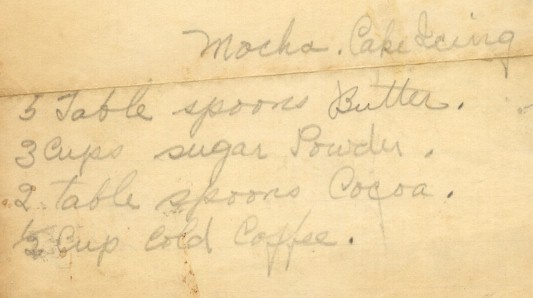 Mocha. Cake Icing
5 Table spoons Butter.
3 Cups sugar Powder.
2 table spoons Cocoa.
½ Cup Cold Coffee.